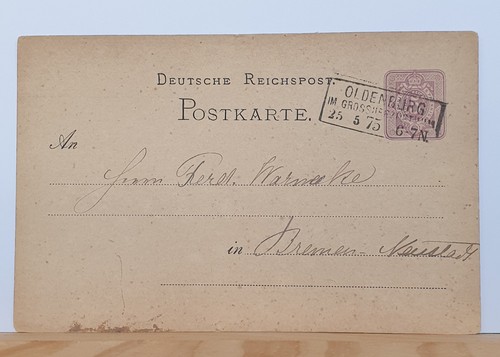 DEUTSCHE REICHSPOST.
POSTKARTE.
OLDENBURG
IM GROSSHERZOGTHUM
25 5 75 6-7N.
An
Herrn Ferd. Warneke
in Bremen-Neustadt